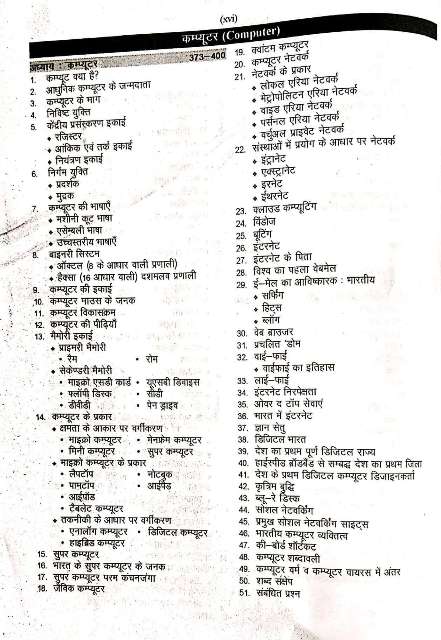 (xvi)
कम्प्यूटर (Computer)
अध्याय : कम्प्यूटर 373–400
1. कम्प्यूट क्या है?
2. आधुनिक कम्प्यूटर के जन्मदाता
3. कम्प्यूटर के भाग
4. निविष्ट युक्ति
5. केंद्रीय प्रसंस्करण इकाई
♦ रजिस्टर
♦ आंकिक एवं तर्क इकाई
♦ नियंत्रण इकाई
6. निर्गम युक्ति
♦ प्रदर्शक
♦ मुद्रक
7. कम्प्यूटर की भाषाएँ
♦ मशीनी कूट भाषा
♦ एसेम्बली भाषा
♦ उच्चस्तरीय भाषाएँ
8. बाइनरी सिस्टम
♦ ऑक्टल (8 के आधार वाली प्रणाली)
♦ हैक्सा (16 आधार वाली) दशमलव प्रणाली
9. कम्प्यूटर की इकाई
10. कम्प्यूटर माउस के जनक
11. कम्प्यूटर विकासक्रम
12. कम्प्यूटर की पीढ़ियाँ
13. मैमोरी इकाई
♦ प्राइमरी मैमोरी
• रैम • रोम
♦ सेकेण्डरी मैमोरी
• माइक्रो एसडी कार्ड • यूएसबी डिवाइस
• फ्लॉपी डिस्क • सीडी
• डीवीडी • पेन ड्राइव
14. कम्प्यूटर के प्रकार
♦ क्षमता के आकार पर वर्गीकरण
• माइक्रो कम्प्यूटर • मेनफ्रेम कम्प्यूटर
• मिनी कम्प्यूटर • सुपर कम्प्यूटर
♦ माइक्रो कम्प्यूटर के प्रकार
• लैपटॉप • नोटबुक
• पामटॉप • आईपैड
• आईपॉड
• टैबलेट कम्प्यूटर
♦ तकनीकी के आधार पर वर्गीकरण
• एनालॉग कम्प्यूटर • डिजिटल कम्प्यूटर
• हाइब्रिड कम्प्यूटर
15. सुपर कम्प्यूटर
16. भारत के सुपर कम्प्यूटर के जनक
17. सुपर कम्प्यूटर परम कंचनजंगा
18. जैविक कम्प्यूटर
19. क्वांटम कम्प्यूटर
20. कम्प्यूटर नेटवर्क
21. नेटवर्क के प्रकार
♦ लोकल एरिया नेटवर्क
♦ मेट्रोपोलिटन एरिया नेटवर्क
♦ वाइड एरिया नेटवर्क
♦ पर्सनल एरिया नेटवर्क
♦ वर्चुअल प्राइवेट नेटवर्क
22. संस्थाओं में प्रयोग के आधार पर नेटवर्क
♦ इंट्रानेट
♦ एक्स्ट्रानेट
♦ इरनेट
♦ ईथरनेट
23. क्लाउड कम्प्यूटिंग
24. विंडोज
25. बूटिंग
26. इंटरनेट
27. इंटरनेट के पिता
28. विश्व का पहला वेबमेल
29. ई-मेल का आविष्कारक : भारतीय
♦ सर्फिंग
♦ हिट्स
♦ ब्लॉग
30. वेब ब्राउजर
31. प्रचलित डोम
32. वाई-फाई
♦ वाईफाई का इतिहास
33. लाई-फाई
34. इंटरनेट निरपेक्षता
35. ओवर द टॉप सेवाएं
36. भारत में इंटरनेट
37. ज्ञान सेतु
38. डिजिटल भारत
39. देश का प्रथम पूर्ण डिजिटल राज्य
40. हाईस्पीड ब्रॉडबैंड से सम्बद्ध देश का प्रथम जिला
41. देश के प्रथम डिजिटल कम्प्यूटर डिजाइनकर्ता
42. कृत्रिम बुद्धि
43. ब्लू-रे डिस्क
44. सोशल नेटवर्किंग
45. प्रमुख सोशल नेटवर्किंग साइट्स
46. भारतीय कम्प्यूटर व्यक्तित्व
47. की-बोर्ड शॉर्टकट
48. कम्प्यूटर शब्दावली
49. कम्प्यूटर वर्म व कम्प्यूटर वायरस में अंतर
50. शब्द संक्षेप
51. संबंधित प्रश्न